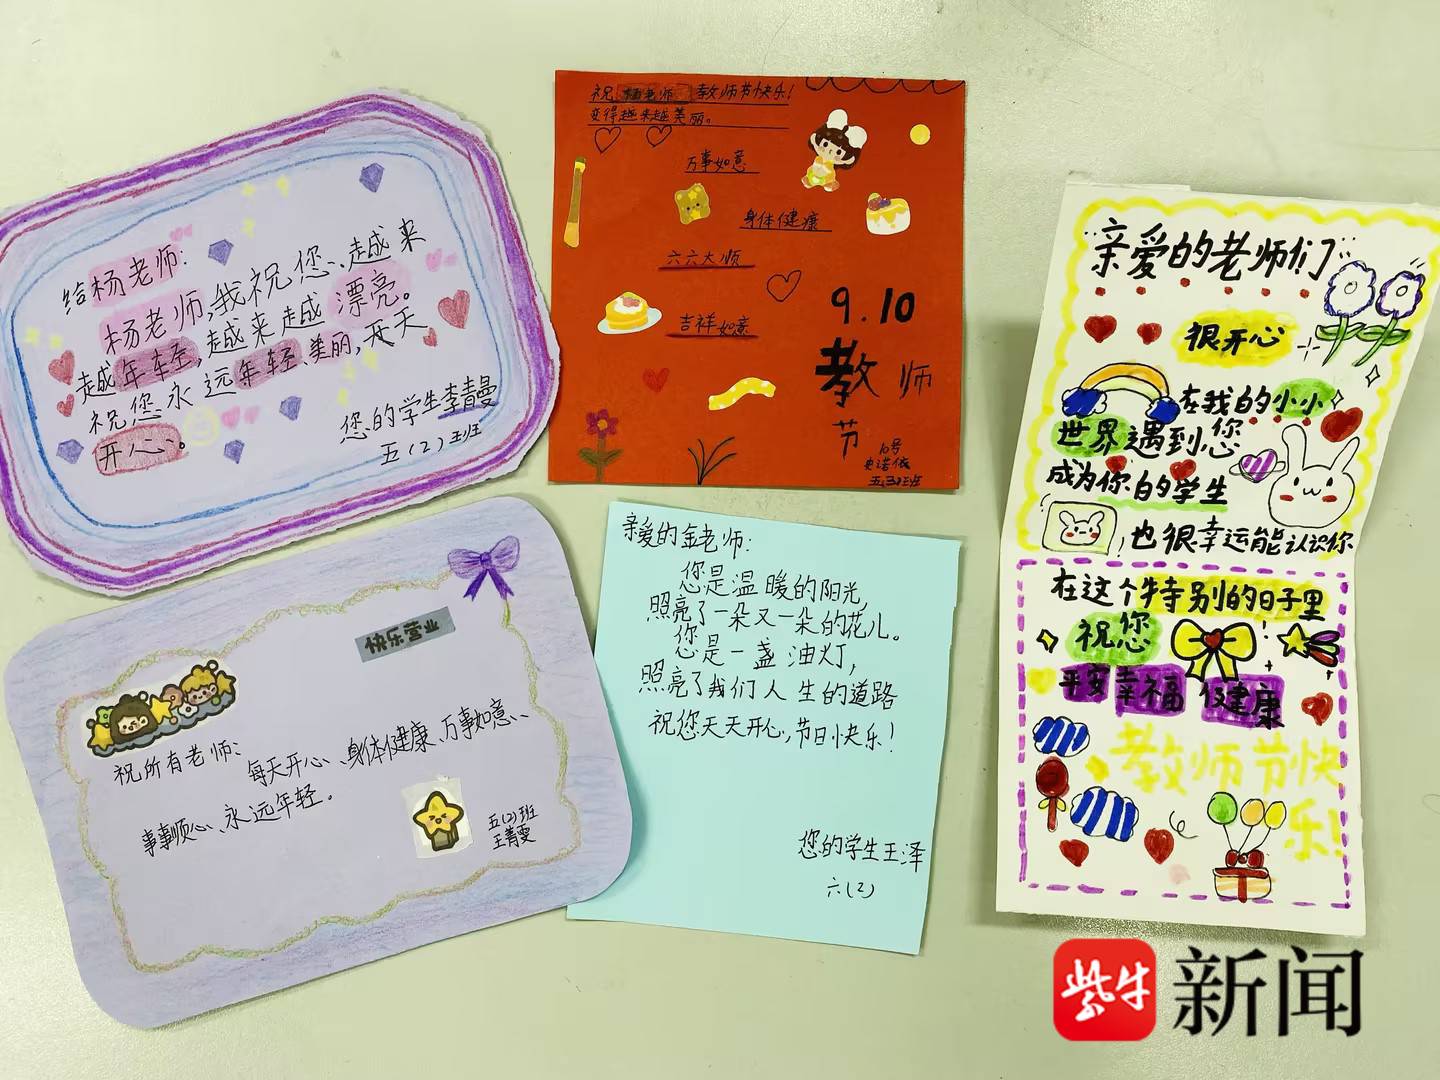 给杨老师:
杨老师,我祝您、越来
越年轻,越来越漂亮。
祝您永远年轻、美丽,天天
开心。
您的学生李青曼
五(2)班
祝 教师节快乐!
变得越来越美丽。
万事如意
身体健康
六六大顺
吉祥如意
9.10
教师
节
10号
史诺依
五(3)班
亲爱的老师们
很开心
在我的小小
世界遇到您
成为你的学生
,也很幸运能认识你
在这个特别的日子里
祝您
平安幸福 健康
教师节快
乐!
快乐营业
祝所有老师:
每天开心、身体健康、万事如意、
事事顺心、永远年轻。
五(2)班
王菁雯
亲爱的金老师:
您是温暖的阳光,
照亮了一朵又一朵的花儿。
您是一盏油灯,
照亮了我们人生的道路
祝您天天开心,节日快乐!
您的学生王泽
六(2)
紫牛新闻